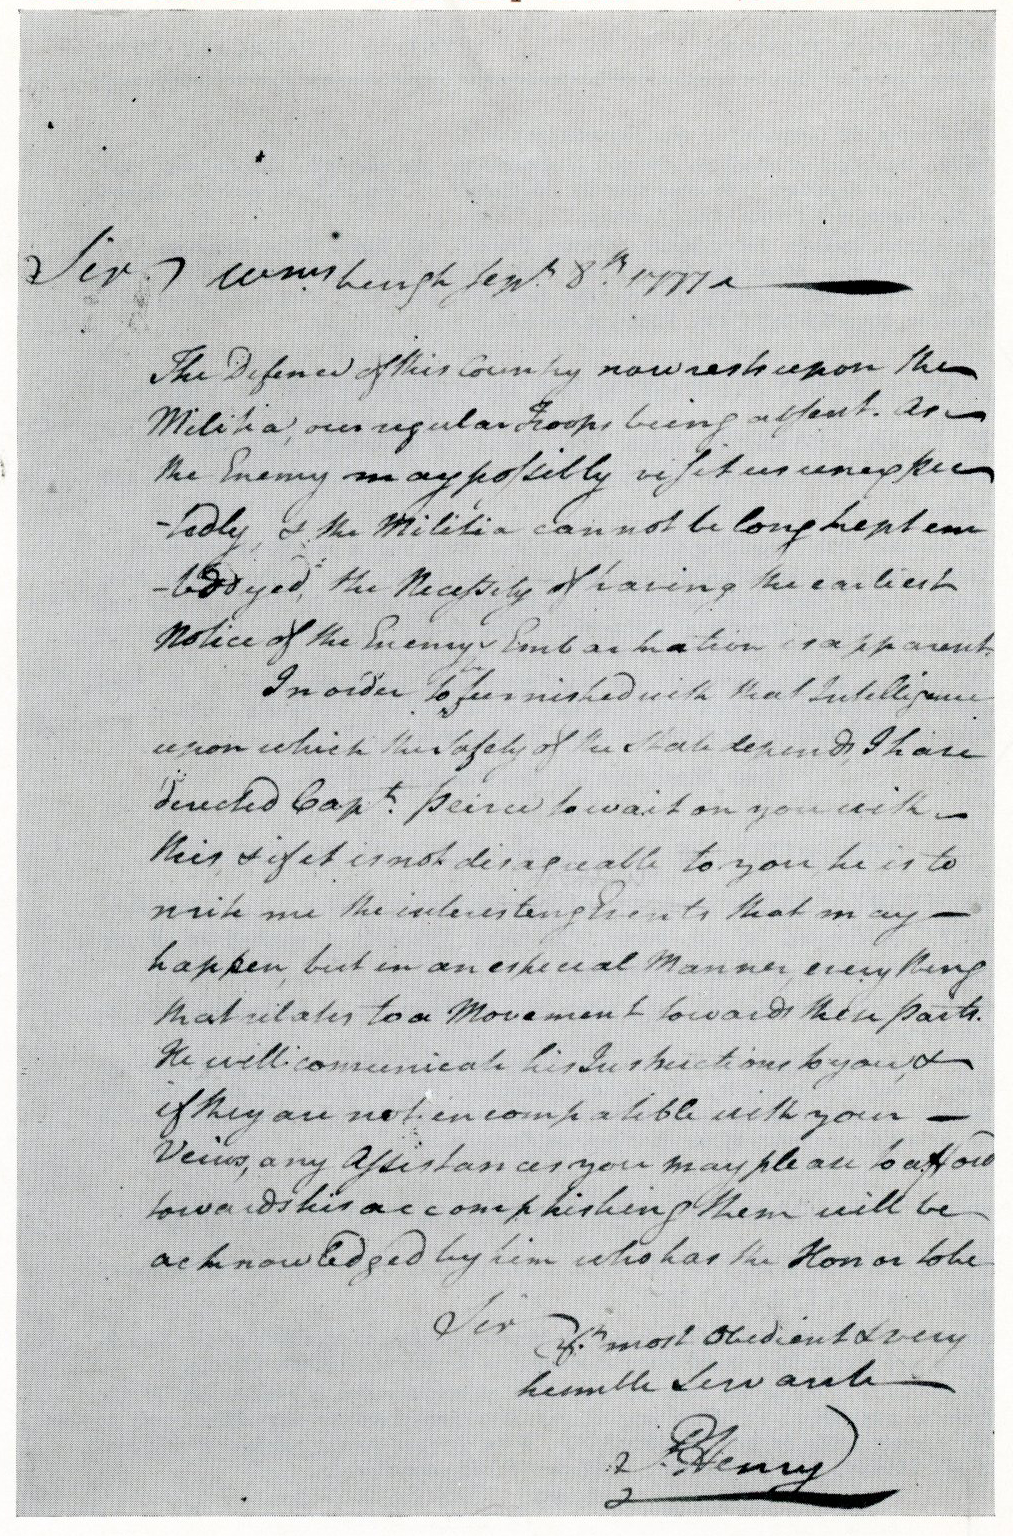 Sir, Wmsburgh Sepr. 8th. 1777
The Defence of this Country now rests upon the
Militia, our regular Troops being absent. As
the Enemy may possibly visit us unexpec
-tedly, & the Militia cannot be long kept em
-bodyed, the Necessity of having the earliest
Notice of the Enemys Embarkation is apparent.
In order to be furnished with that Intelligence
upon which the Safety of the State depends, I have
directed Capt. Peirce to wait on you with
this, & if it is not disagreable to you, he is to
write me the interesting Events that may
happen, but in an especial Manner, every thing
that relates to a Movement towards these parts.
He will comunicate his Instructions to you, &
if they are not incompatible with your
Veiws, any Assistances you may please to afford
towards his accomplishing them will be
acknowledged by him who has the Honor to be
Sir
Yr. most Obedient & very
humble Servant
P. Henry